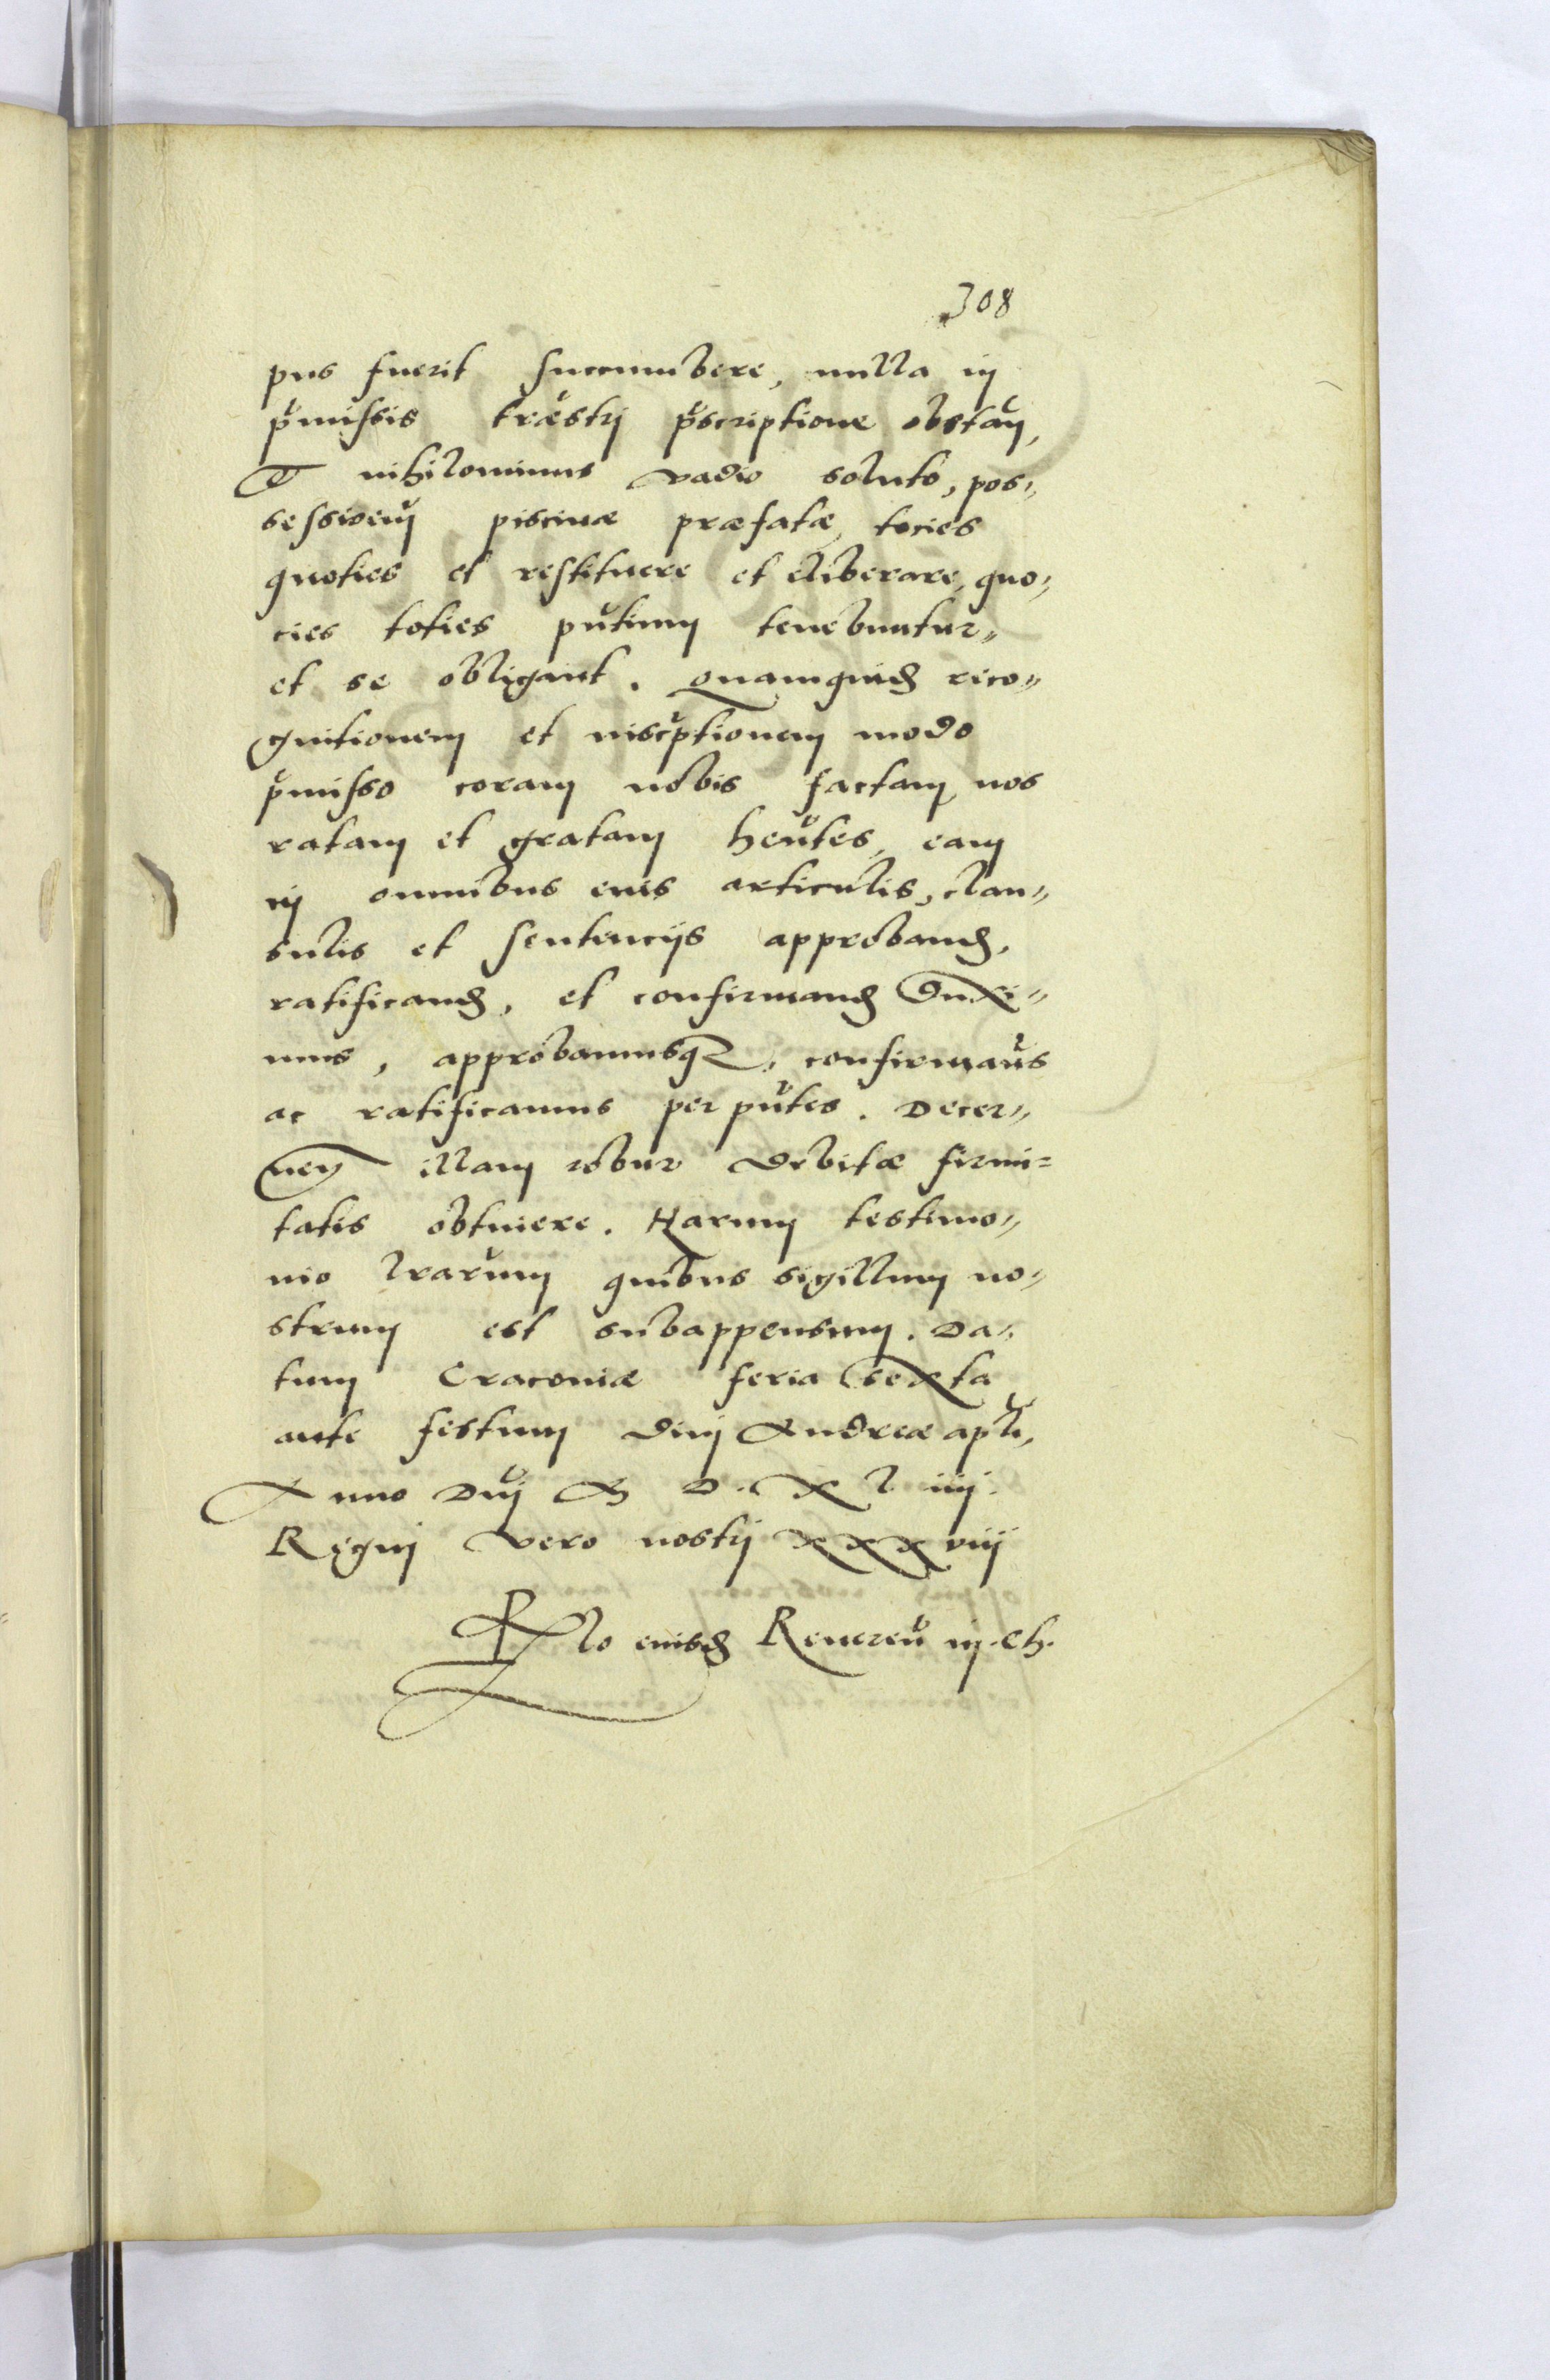 308
pus fuerit succumbere, nulla in
pr̃missis tr̃æstri pr̃scriptione obstan̄,
Et nihilominus vadio soluto, pos„
sessioem̃ piscinæ præfatæ, tocies
quoties et restituere et eliberare, quo„
cies toties pñtium tenebuntur„
et se obligant. Quamquid̃ reco„
gnitionem et inscrp̃tionem modo
pr̃misso coram nobis factam, nos
ratam et gratam heñtes, eam
in omnibus eius articulis, clau„
sulis et sentencijs approband̃,
ratificand̃, et confirmand̃ duxi„
mus, approbamusq3, confirmam̃s
ac ratificamus per pñtes. Decer„
nen̄ illam robur debitæ firmi=
tatis obtinere. Harum testimo„
nio lr̃arum quibus sigillum no„
strum est subappensum. Da„
tum Cracoviæ feria sexta
ante festum divi Andreæ apl̃i,
Anno Dñi M D. X L iiij.
Regni vero nostri xxxviij
Rlo eiusd̃ Reveren̄ in. Ch.